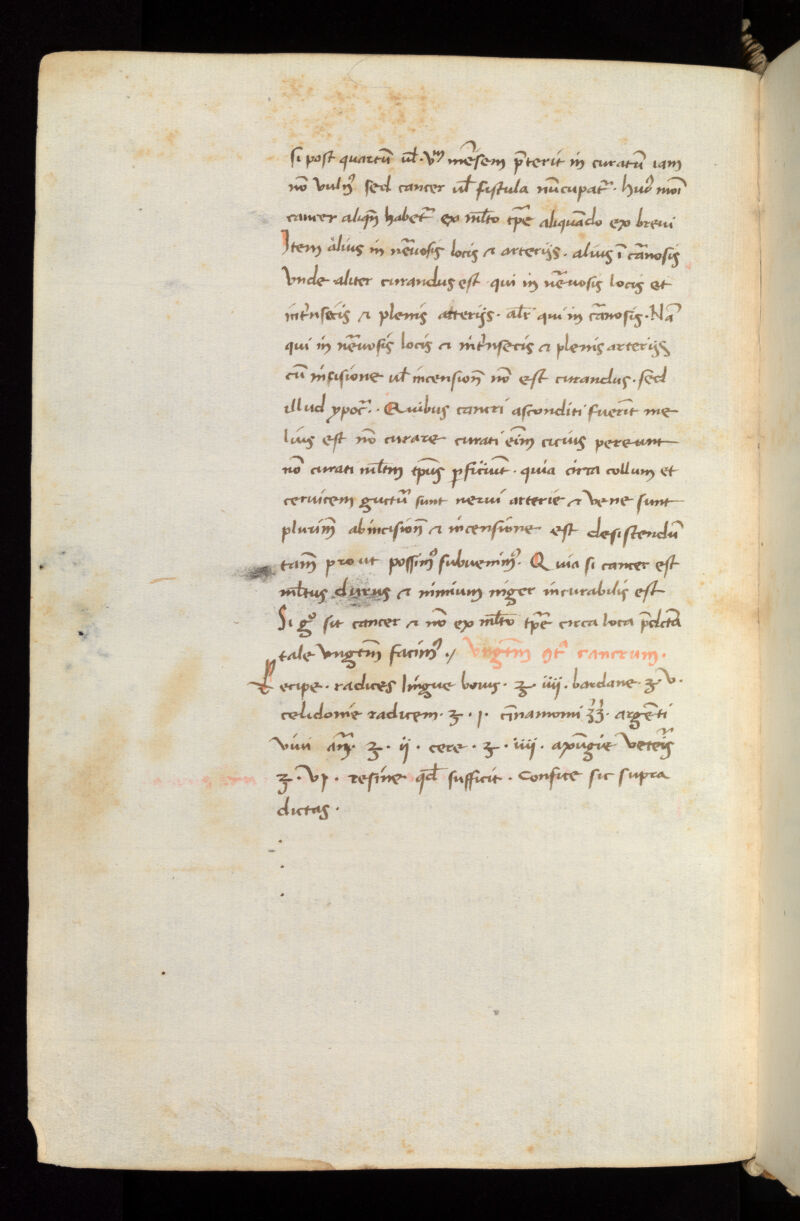 si post quartū ul̄ vm̄ mēsem p̄terit in curatū iam
nō vuln⁹ sed cancer ul̄ fistula nūcupat᷑. hui⁹ mōi
cancer aliqn̄ habet᷑ ex ml̄to tp̄e aliquādo ex brevi
Item alius in nēuosis locis ⁊ arterijs. alius ī cānosis
vnde aliter curandus est qui in nēuosis locis et
int̄nsecis ⁊ plenis arterijs. alr̄ qui in cānosis. Nā
qui in nēuosis locis ⁊ int̄nsecis ⁊ plenis arterijs
cū incisione ul̄ incensioñ nō est curandus. sed
illud ypoc᷑. Quibus cancri asconditi fuerīt me
lius est nō curare curati eīm cicius pereunt
nō curati ml̄tm tp̄us p̄ficiūt. quia circa collum et
ceruicem guctur̄ sunt nerui arterie ⁊ vene sunt
plurim̄ ab incisioñ ⁊ incensione est desistendū
tam̄ prout possim⁹ subuenim⁹. Quia si cancer est
ml̄tus durus ⁊ nimium niger incurabilis est
Si gͦ sit cancer ⁊ nō ex ml̄to tp̄e circa loca p̄dc̄ta
tale vngtm̄ facim⁹ ./ Vngtm̄ 9t᷑ cancrum.
Recipe. radices lingue bouis. ʒ. iiij. bardane. ʒ v.
celidonie radicem. ʒ. j. cīnamomi ʒ̄ʒ̄. argēti
viui an̄. ʒ. ij. cere. ʒ. iiij. axūgie veteris
ʒ. vj. resine qd̄ sufficit. Confice sic supra
dictas.